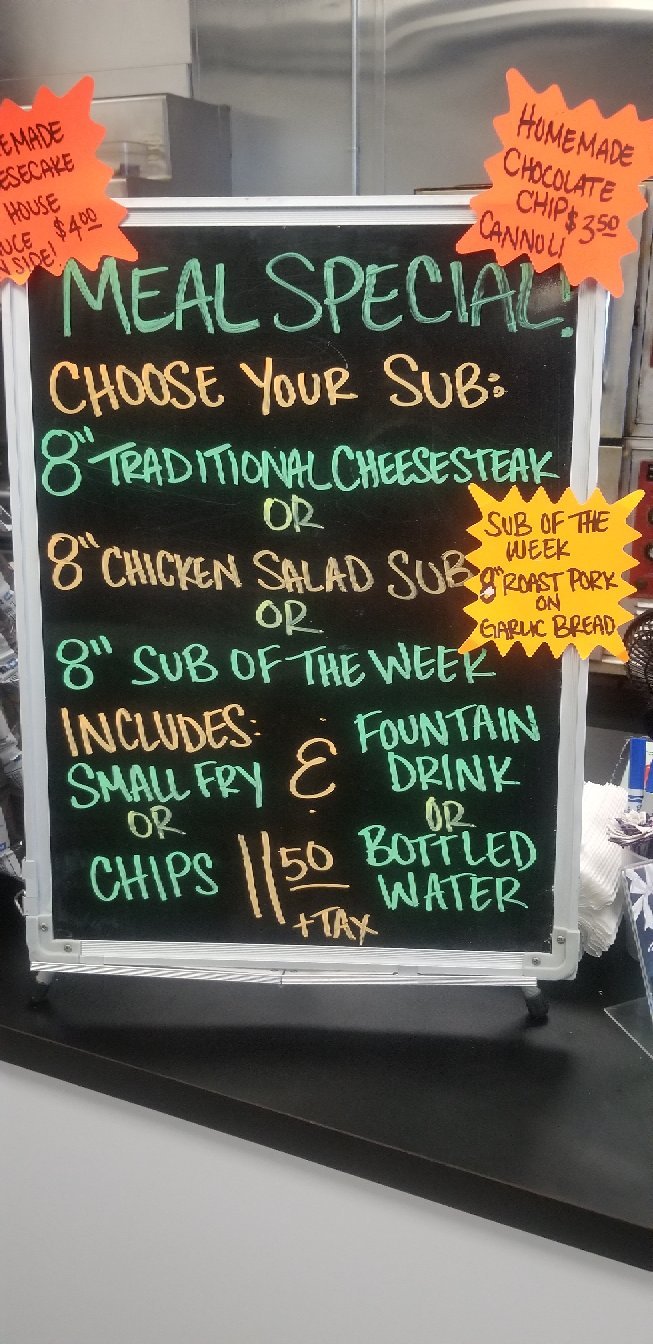 EMADE
ESECAKE
HOUSE
UCE $4.00
NSIDE!
HOMEMADE
CHOCOLATE
CHIP $3.50
CANNOLI
MEAL SPECIAL!
CHOOSE YOUR SUB:
8" TRADITIONAL CHEESESTEAK
OR
8" CHICKEN SALAD SUB
OR
8" SUB OF THE WEEK
SUB OF THE
WEEK
8" ROAST PORK
ON
GARLIC BREAD
INCLUDES:
SMALL FRY
OR
CHIPS
&
FOUNTAIN
DRINK
OR
BOTTLED
WATER
11 50
+TAX